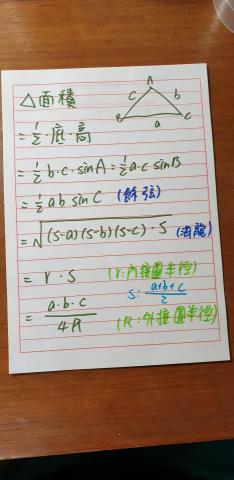 △面積
A
c b
B a C
=½·底·高
=½b·c·sinA=½a·c sinB
=½ab sinC (餘弦)
=√(s-a)(s-b)(s-c)·s (海龍)
=r·s (r:內接圓半徑)
s:(a+b+c)/2
=(a·b·c)/4R (R:外接圓半徑)